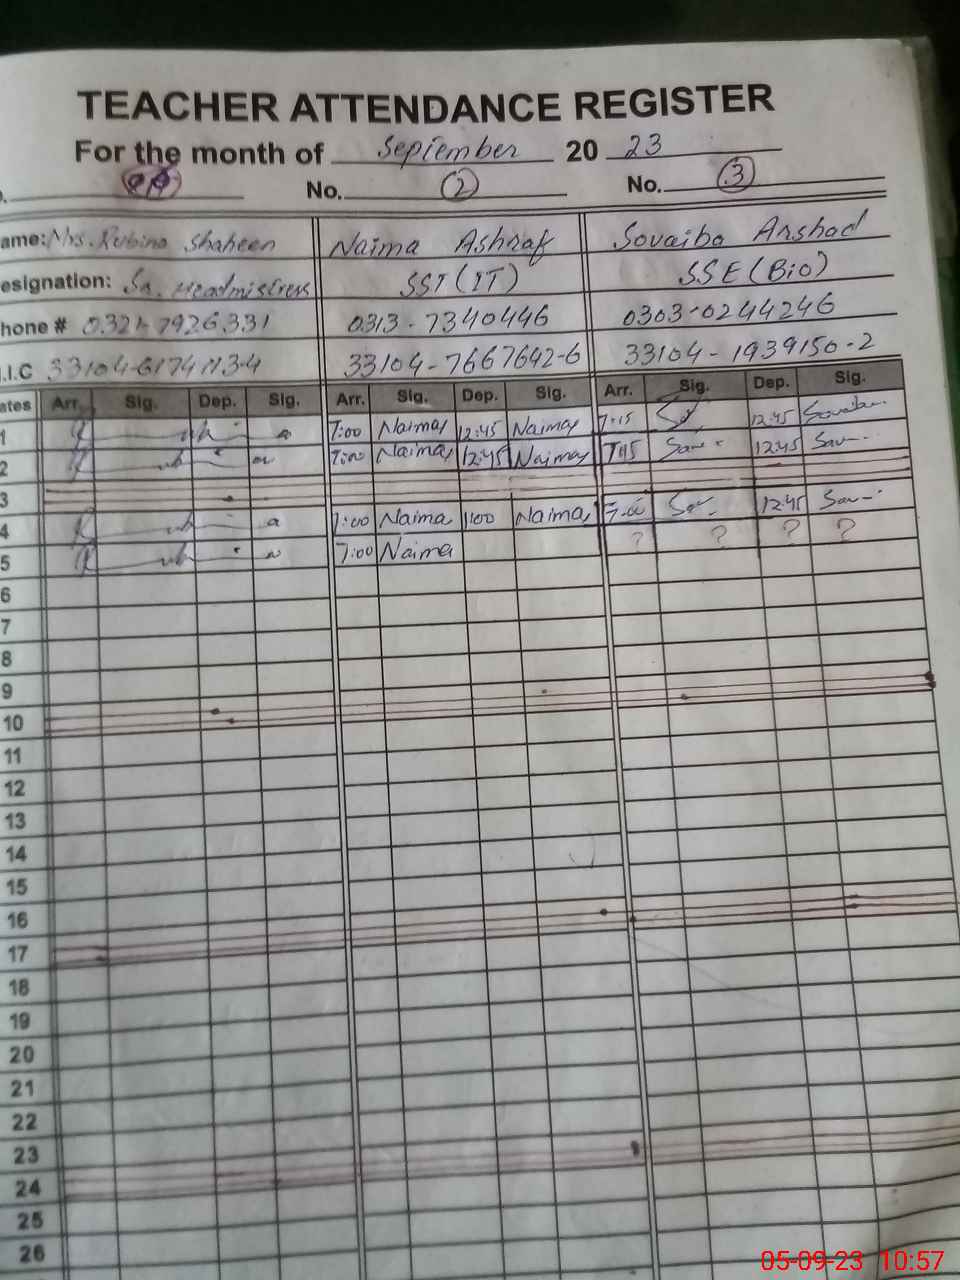 TEACHER ATTENDANCE REGISTER
For the month of September 20 23
No. 2 No. 3
ame: Mrs. Rubina Shaheen Naima Ashraf Sovaiba Arshad
esignation: Sr. Headmistress SST (IT) SSE (Bio)
hone # 0321-7926331 0313-7340446 0303-0244246
.I.C 33104- 33104-7667642-6 33104-1939150-2
ates Arr. Sig. Dep. Sig. Arr. Sig. Dep. Sig. Arr. Sig. Dep. Sig.
1 7:00 Naima 12:45 Naima 7:15 12:45
2 7:00 Naima 12:45 Naima 12:45
3
4 7:00 Naima 1:00 Naima 12:45
5 7:00 Naima ? ? ? ?
6
7
8
9
10
11
12
13
14
15
16
17
18
19
20
21
22
23
24
25
26
05-09-23 10:57